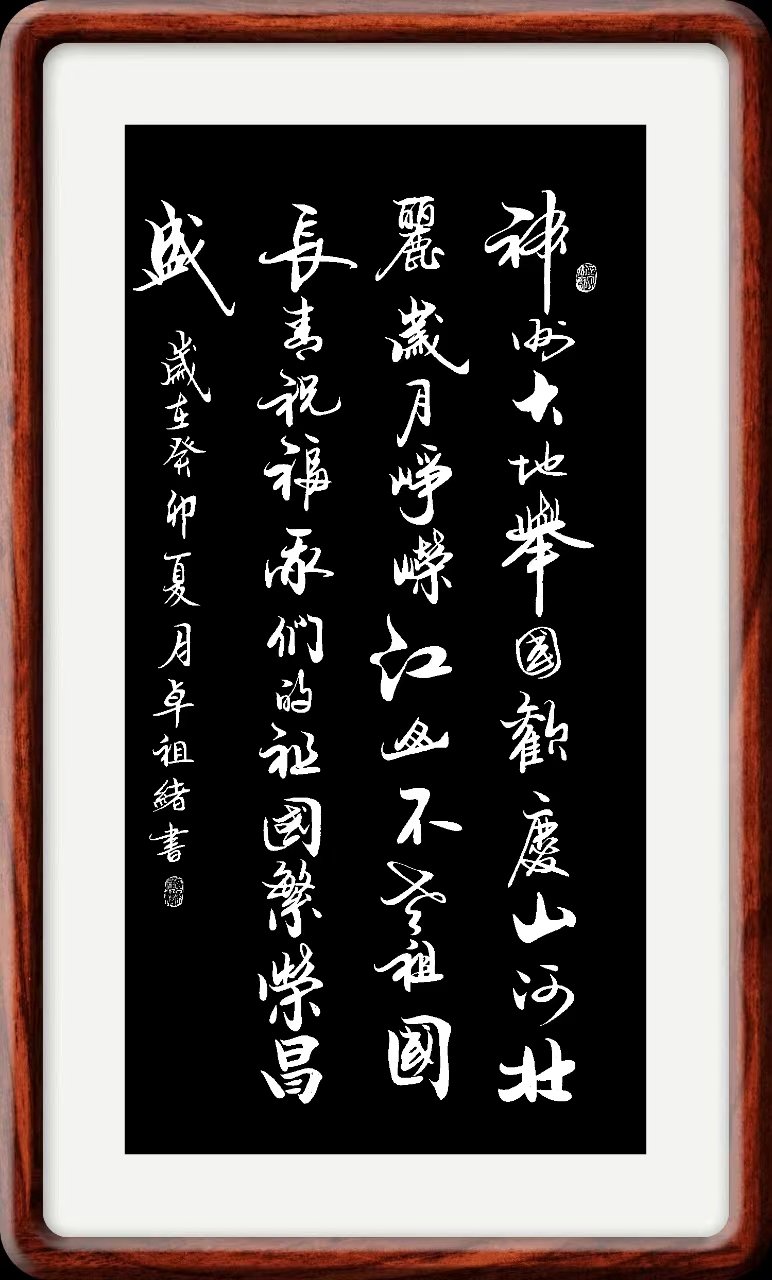 神州大地舉國歡慶山河壯
麗歲月崢嶸江山不老祖國
長青祝福我們的祖國繁榮昌
盛
歲在癸卯夏月卓祖緒書